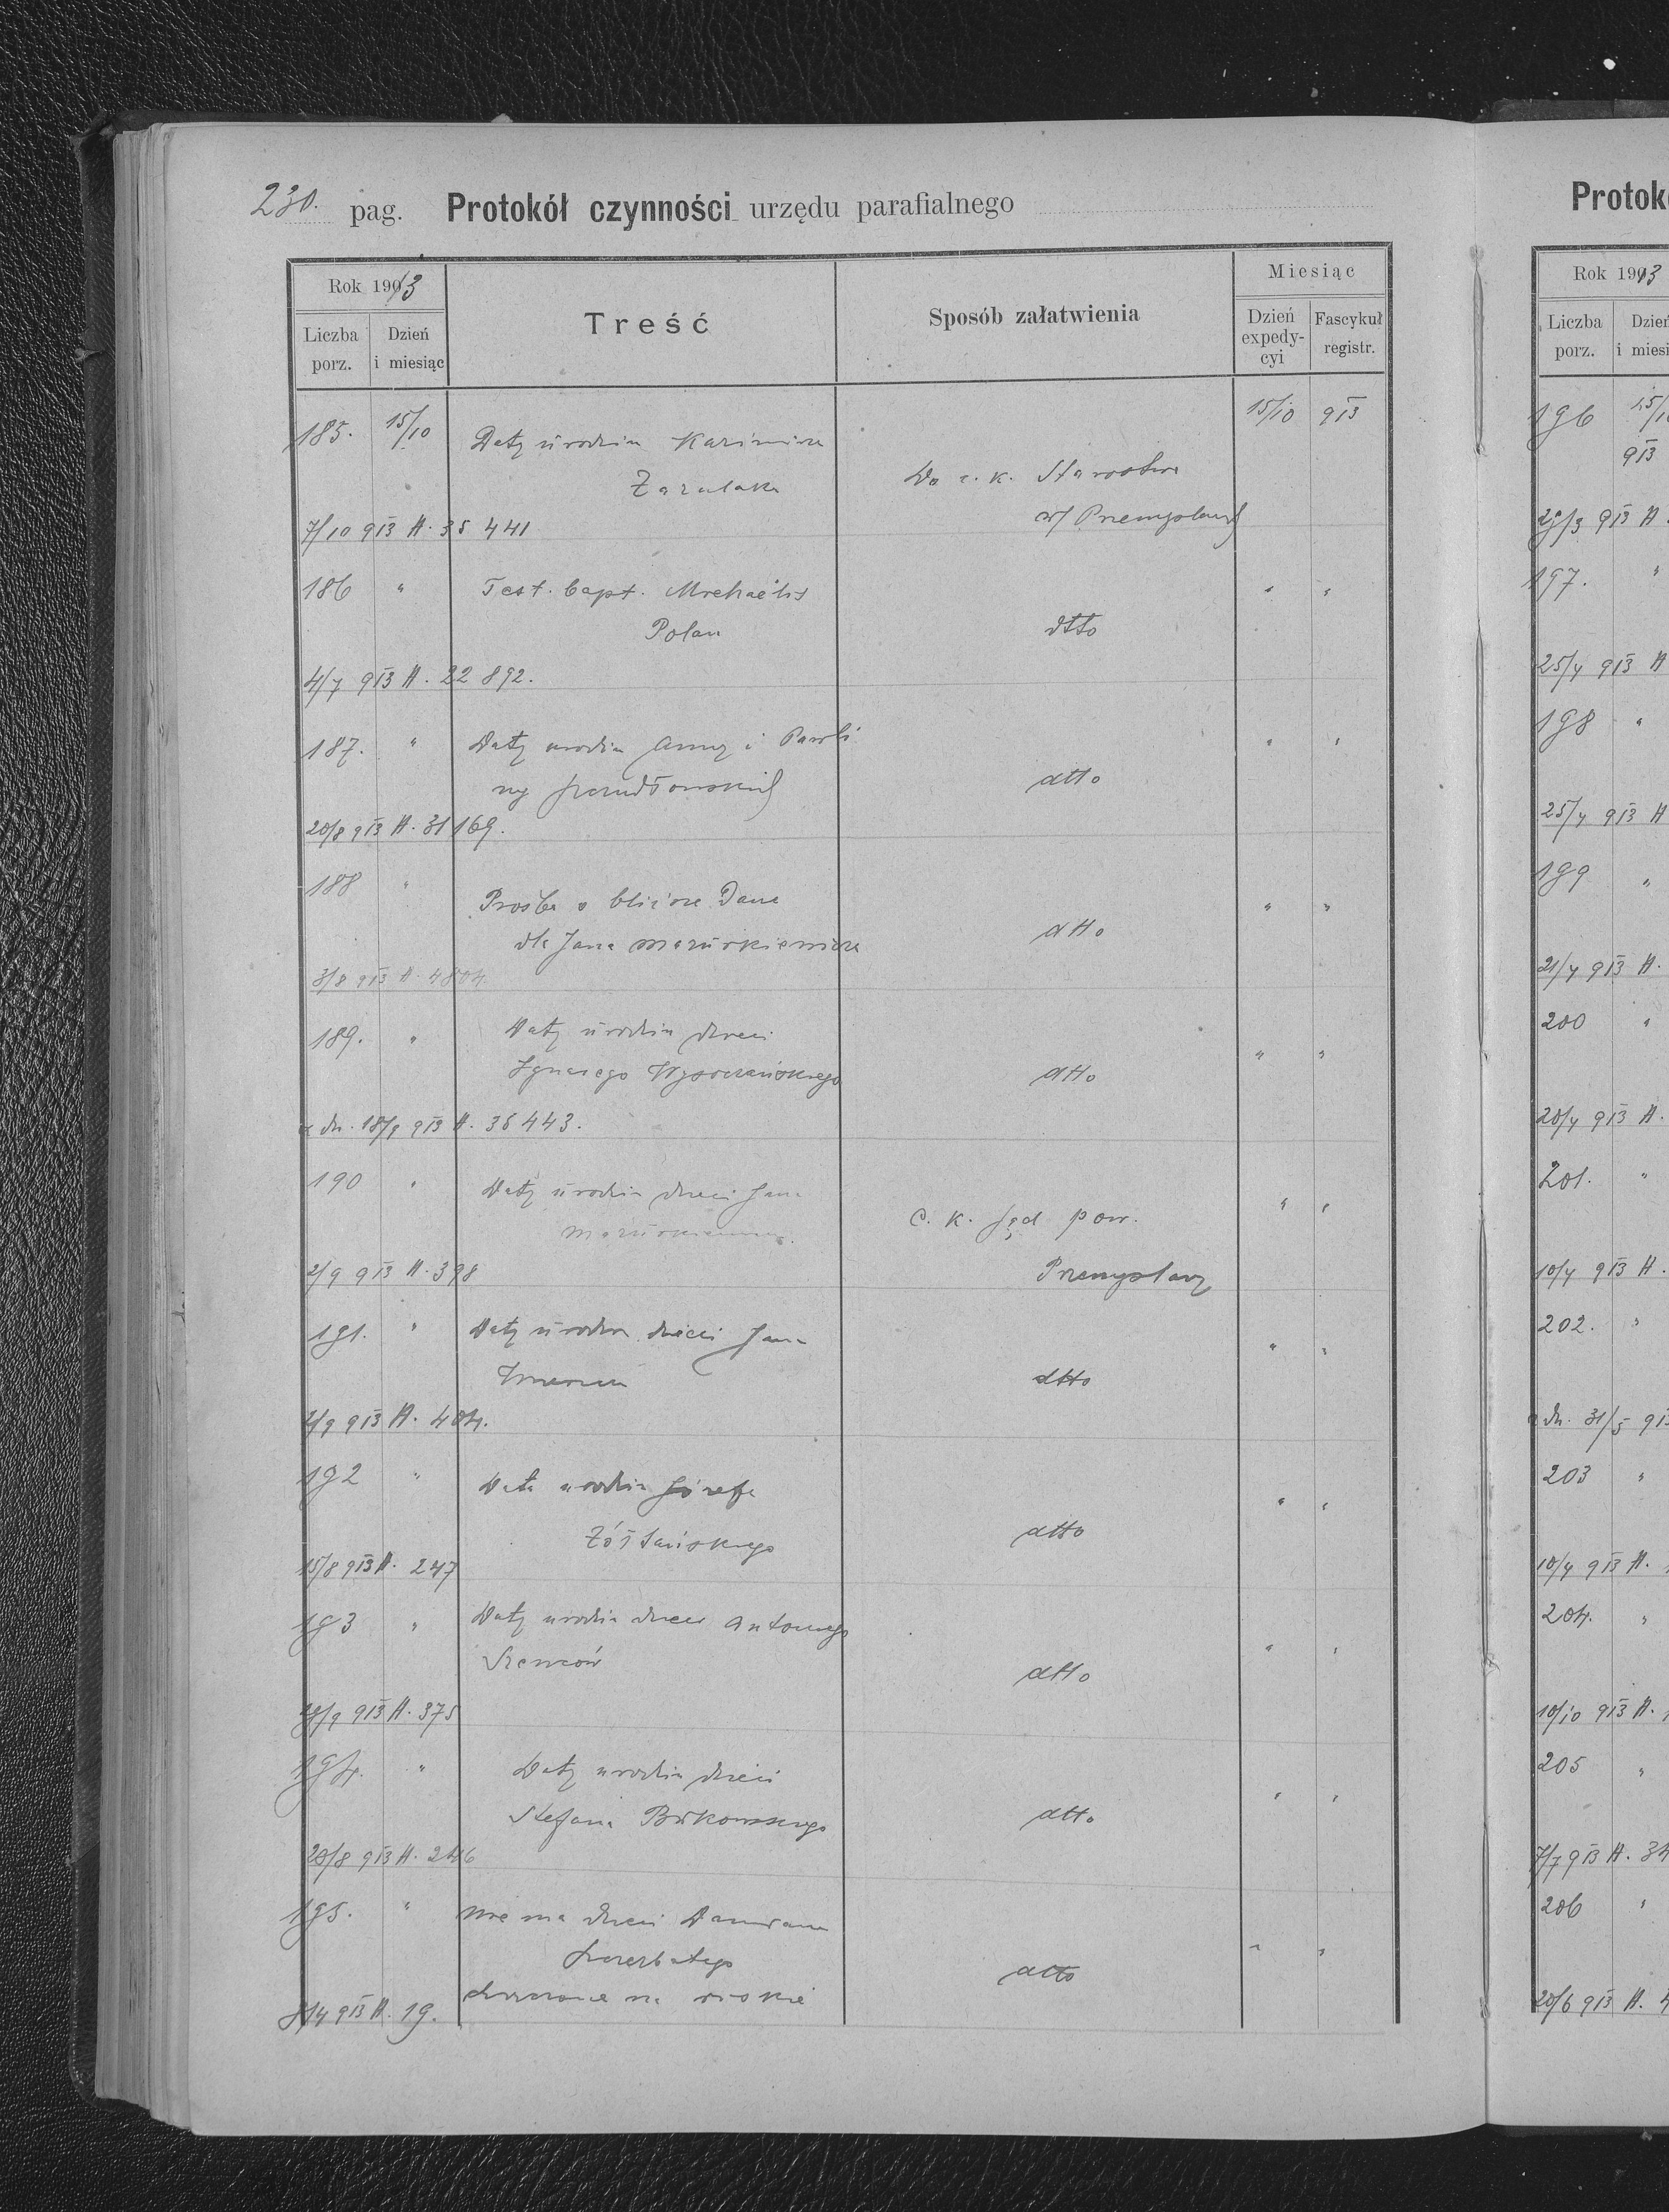 230. pag. Protokół czynności urzędu parafialnego
Rok 1913
Liczba porz.
Dzień i miesiąc
Treść
Sposób załatwienia
Miesiąc
Dzień expedycyi
Fascykuł registr.
185. 15/10 Daty urodzin Kazimierza 15/10 913
Do c. k. Starostwa
w Przemyślanach
7/10 913 A. 35 441
186 " Test. bapt. Michaelis " "
Polan dtto
4/7 913 A. 22 892.
187. " Daty urodzin Anny i Pauli " "
ny dtto
20/8 913 A. 31 169.
188 " Prośba o bliższe Dane " "
dla Jana Mazurkiewicza dtto
3/8 913 A. 4804
189. " Daty urodzin dzieci " "
Ignacego Wysoczańskiego dtto
z dn. 18/9 913 A. 35 443.
190 " Daty urodzin dzieci Jana " "
Mazurkiewicza. C. k. Sąd pow.
2/9 913 A. 398 Przemyślany
191. " Daty urodzin dzieci Jana " "
dtto
2/9 913 A. 404.
192 " Data urodzin Józefa " "
Żółtańskiego dtto
15/8 913 A. 247
193 " Daty urodzin dzieci Antoniego " "
Szewców dtto
913 A. 375
194. " Daty urodzin dzieci " "
Stefana dtto
20/8 913 A. 246
195. " nie ma dzieci Damiana " "
Szczerbatego dtto
913 A. 19.
Protok
Rok 1913
Liczba porz.
Dzień
i miesi
196 25/1
913
29/3 913 A.
197. "
25/4 913 A
198 "
25/4 913 A
199 "
21/4 913 A.
200 "
20/4 913 A.
201. "
10/4 913 A.
202. "
z dn. 31/5 913
203 "
10/4 913 A.
204. "
10/10 913 A.
205 "
7/7 913 A. 34
206 "
20/6 913 A. 4